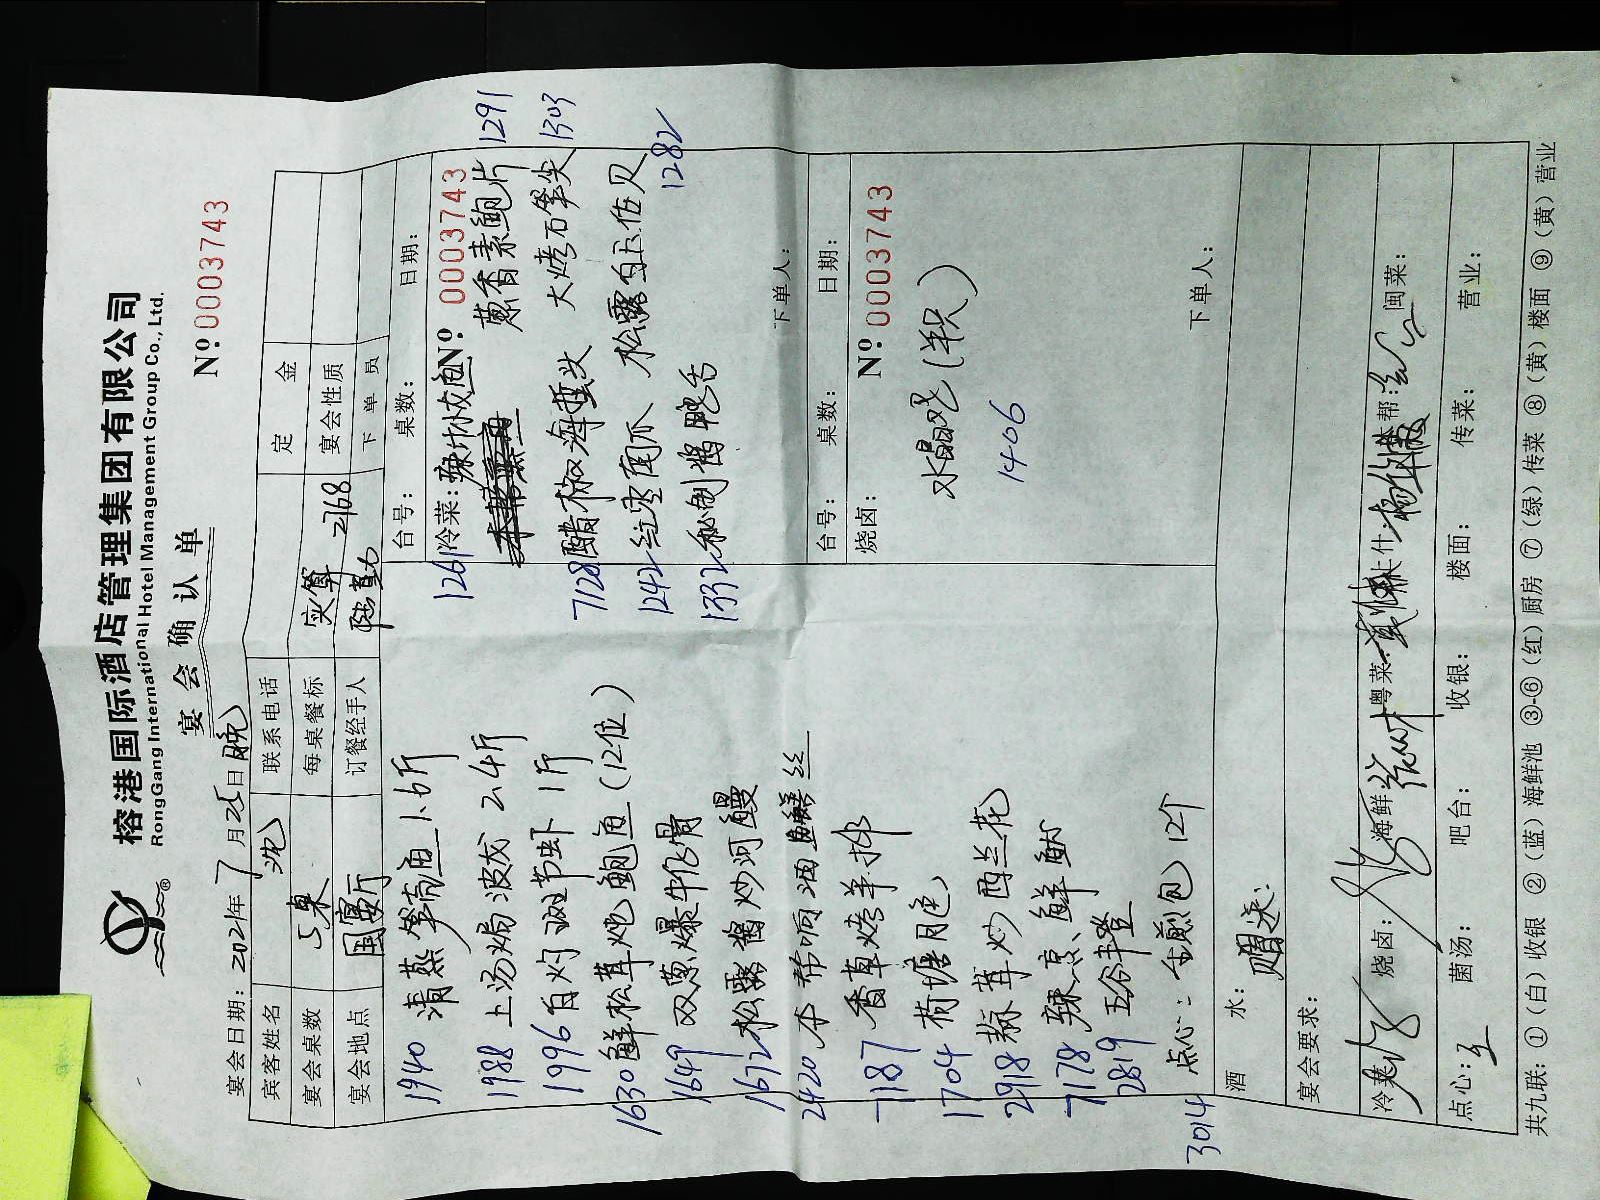 榕港国际酒店管理集团有限公司
RongGang International Hotel Management Group Co., Ltd.
®
宴会确认单
宴会日期: 2021年 7月25日晚 Nº 0003743
宾客姓名 沈 联系电话 定金
宴会桌数 5桌 每桌餐标 实算 2768 宴会性质
宴会地点 国宴厅 订餐经手人 下单员
1940 清蒸笋壳鱼 1.6斤
1988 上汤焗波龙 2.4斤
1996 白灼斑节虾 1斤
1630 鲜松茸炖鲍鱼 (12位)
1649 双葱爆牛仔骨
1672 松露酱炒河鳗
2420 本帮响油鳝丝
7187 香草烤羊排
1704 荷塘月色
2918 蒜茸炒西兰花
7178
2819 五谷丰登
3014 点心: 生煎包 12个
台号: 桌数: 日期:
冷菜: Nº 0003743
1261
葱香素鲍片 1291
7128 醋椒海蜇头
大烤石笋尖 1303
1242
松露白玉佐贝 1282
1332 秘制酱鸭舌
下单人:
台号: 桌数: 日期:
烧卤: Nº 0003743
水晶鸡 (半只)
1406
下单人:
酒水: 自来.
宴会要求:
冷菜: 烧卤: 海鲜: 粤菜: 上什: 本帮: 闽菜:
点心: 王 菌汤: 吧台: 收银: 楼面: 传菜: 营业:
共九联: ①(白)收银 ②(蓝)海鲜池 ③-⑥(红)厨房 ⑦(绿)传菜 ⑧(黄)楼面 ⑨(黄)营业